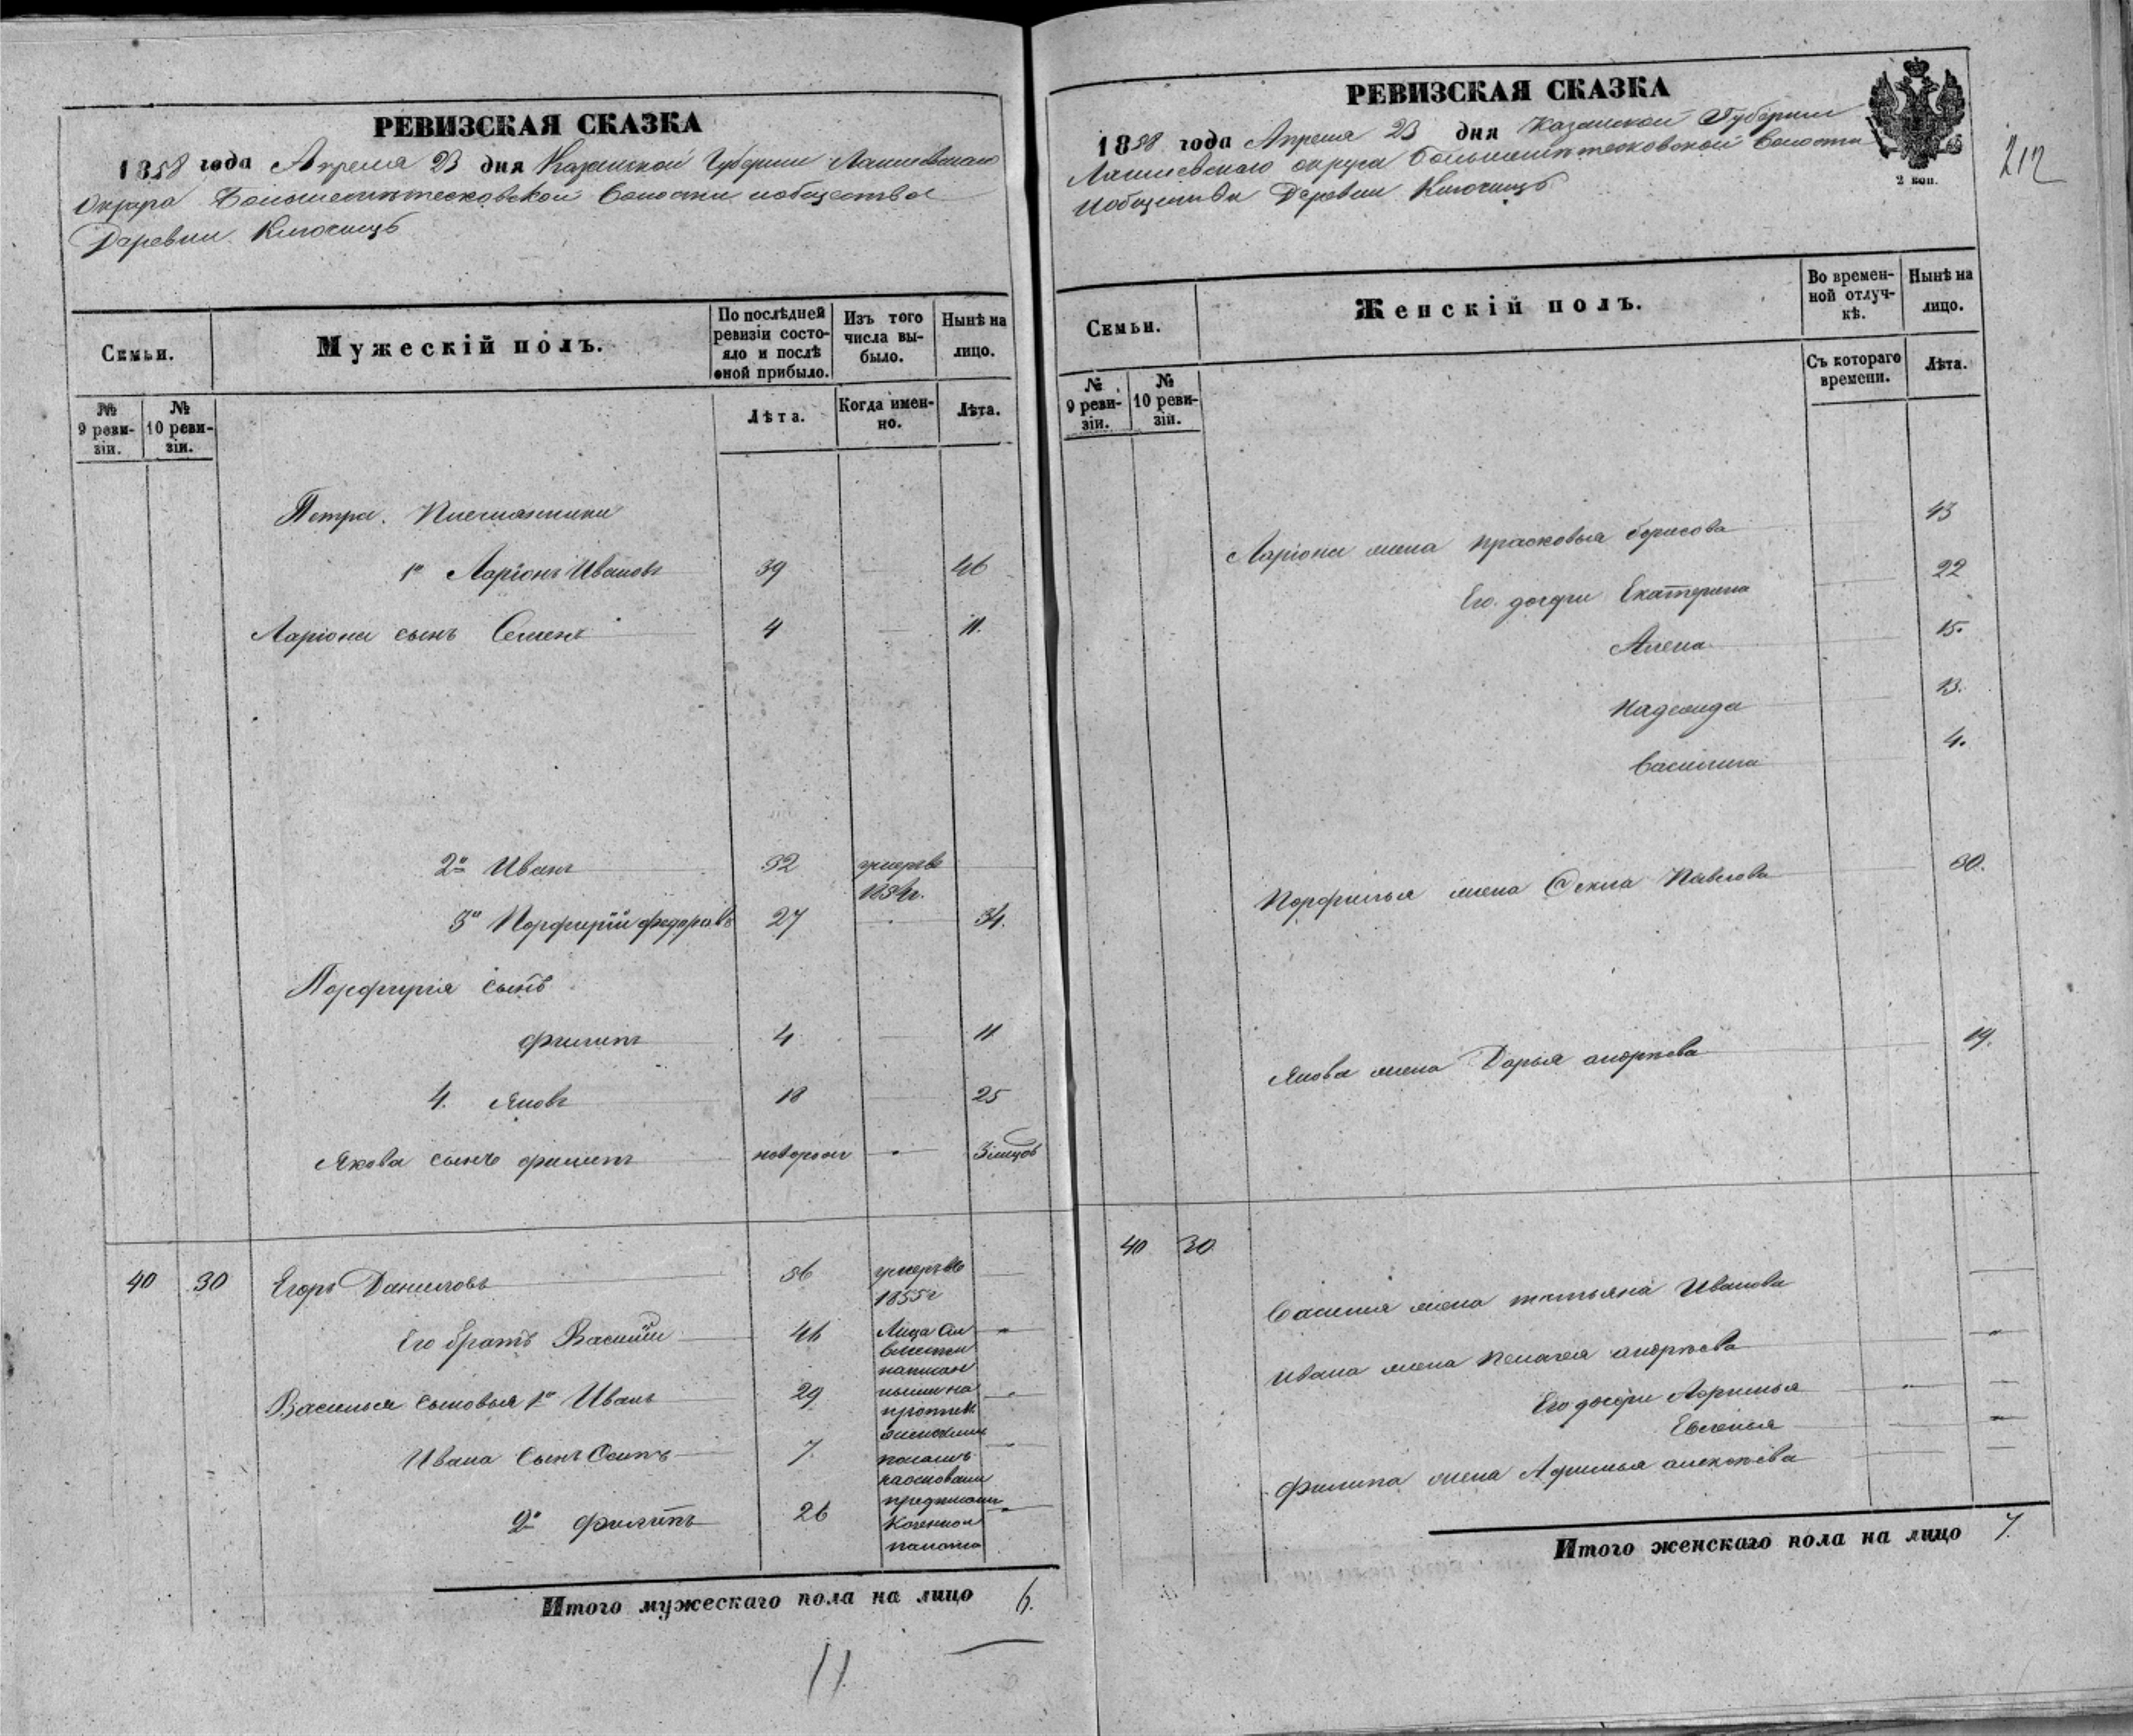 РЕВИЗСКАЯ СКАЗКА
1858 года Апреля 23 дня Казанской Губернии Лаишевскаго
Округа Волости и общества
Деревни Ключищъ
Семьи.
Мужескій полъ.
По послѣдней ревизіи состояло и послѣ оной прибыло.
Изъ того числа выбыло.
Нынѣ на лицо.
№ 9 ревизіи.
№ 10 ревизіи.
Лѣта.
Когда именно.
Лѣта.
Петра. Племянники
1й Ларіонъ Ивановъ 39 — 46
Ларіона сынъ Семенъ 4 — 11.
2й Иванъ 32 умеръ въ
185 г.
3й Порфирій Федоровъ 27 - 34.
Порфирія сынъ
Филипъ 4 — 11
4. Яковъ 18 — 25
Якова сынъ Филипъ новорож - 3 мцовъ
40 30 Егоръ Даниловъ 56 умеръ въ
1855 г
Его братъ Василій 46 Лица сіи
Василья сыновья 1й Иванъ 29
Ивана сынъ Осипъ 7
2й Филипъ 26
Итого мужескаго пола на лицо 6.
11
РЕВИЗСКАЯ СКАЗКА
1858 года Апреля 23 дня Казанской Губернии
Лаишевскаго округа Волости
и общества Деревни Ключищъ
2 коп.
212
Семьи.
Женскій полъ.
Во временной отлучкѣ.
Нынѣ на лицо.
№ 9 ревизіи.
№ 10 ревизіи.
Съ котораго времени.
Лѣта.
Ларіона жена Прасковья Борисова 43
Его дочери Екатерина 22
Алена 15.
Надежда 13.
Василиса 4.
Порфирья жена Павлова 30.
Якова жена Дарья Андреева 19.
40 30
Василия жена Татьяна Иванова
Ивана жена Пелагея Андреева
Его дочери
Евгенья
Филипа жена Алексеева
Итого женскаго пола на лицо 7.